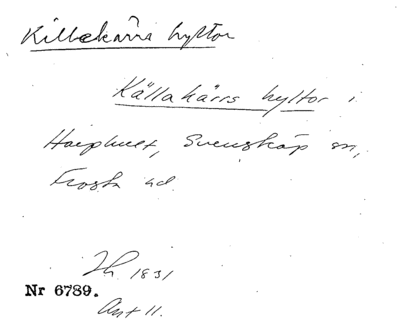 Killekärrs hyltor
Källakärrs hyltor i
Svensköp sn,
Frosta hd
Lh. 1831
Nr 6789.
Akt 11.